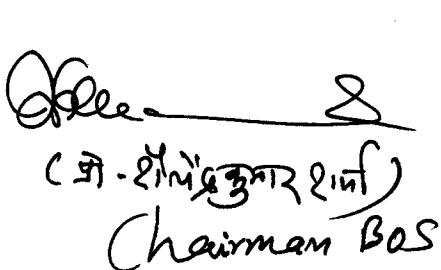 (प्रो - शैलेंद्रकुमार शर्मा)
Chairman BOS